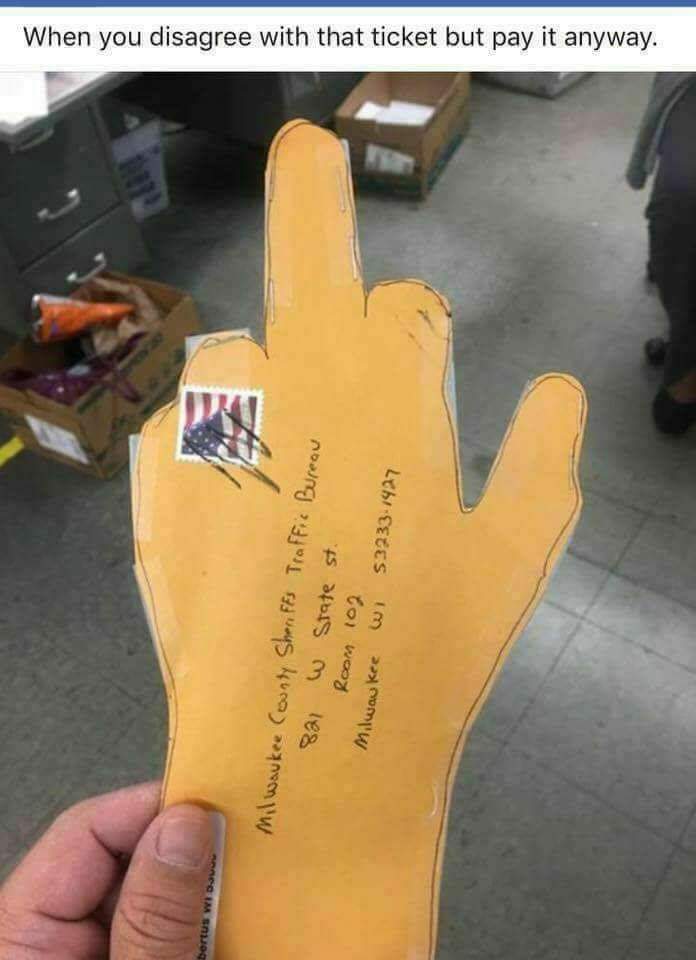 When you disagree with that ticket but pay it anyway.
Milwaukee County Sheriffs Traffic Bureau
821 W State st.
Room 102
Milwaukee WI 53233-1427
bertus WI